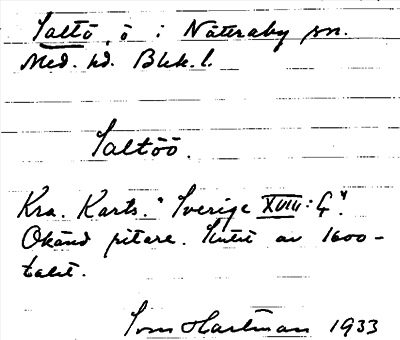 Saltö, ö i Nättraby sn.
Med. hd. Blek. l.
Saltöö.
Kra. Karts. "Sverige XVIII: 4".
Okänd ritare. Slutet av 1600-
talet.
Tom Hartman 1933